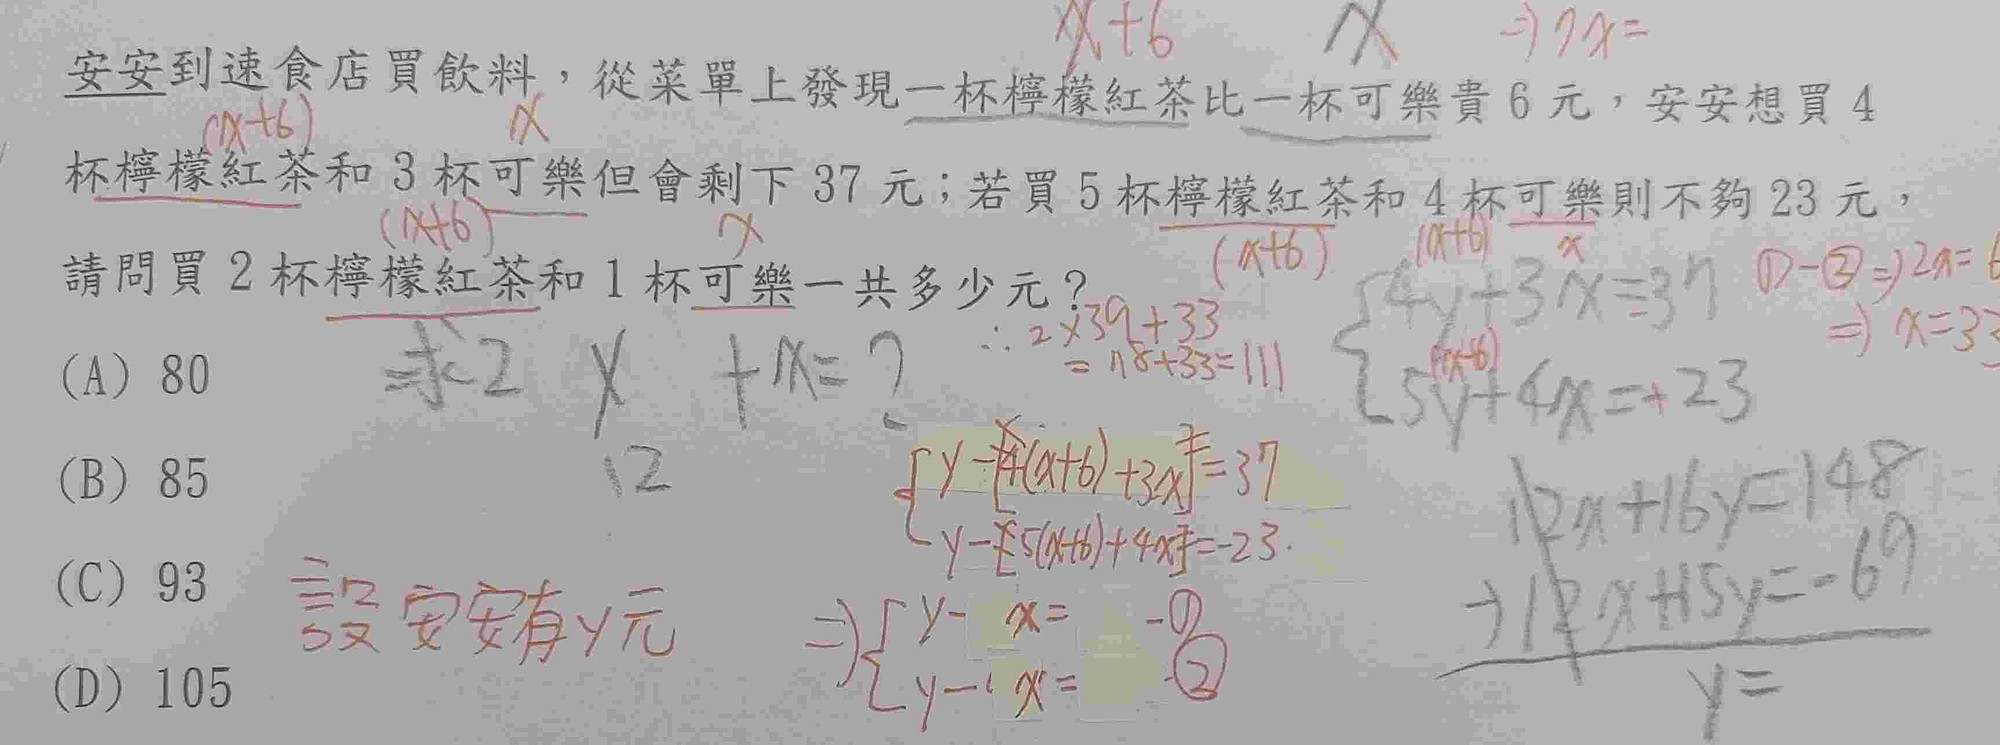 x+6 x ⇒7x=
安安到速食店買飲料，從菜單上發現一杯檸檬紅茶比一杯可樂貴 6 元，安安想買 4
(x+6) x
杯檸檬紅茶和 3 杯可樂但會剩下 37 元；若買 5 杯檸檬紅茶和 4 杯可樂則不夠 23 元，
(x+6) x (x+6) x
請問買 2 杯檸檬紅茶和 1 杯可樂一共多少元？
(x+6)
4y+3x=37
①-②⇒2x=6
⇒x=33
∴2×39+33
=78+33=111
(x+6)
5y+4x=+23
(A) 80
求2y+x=?
12
(B) 85
y-[4(x+6)+3x]=37
y-[5(x+6)+4x]=-23
12x+16y=148
→12x+15y=-69
y=
(C) 93
設安安有y元
⇒ y- x= -①
y- x= -②
(D) 105